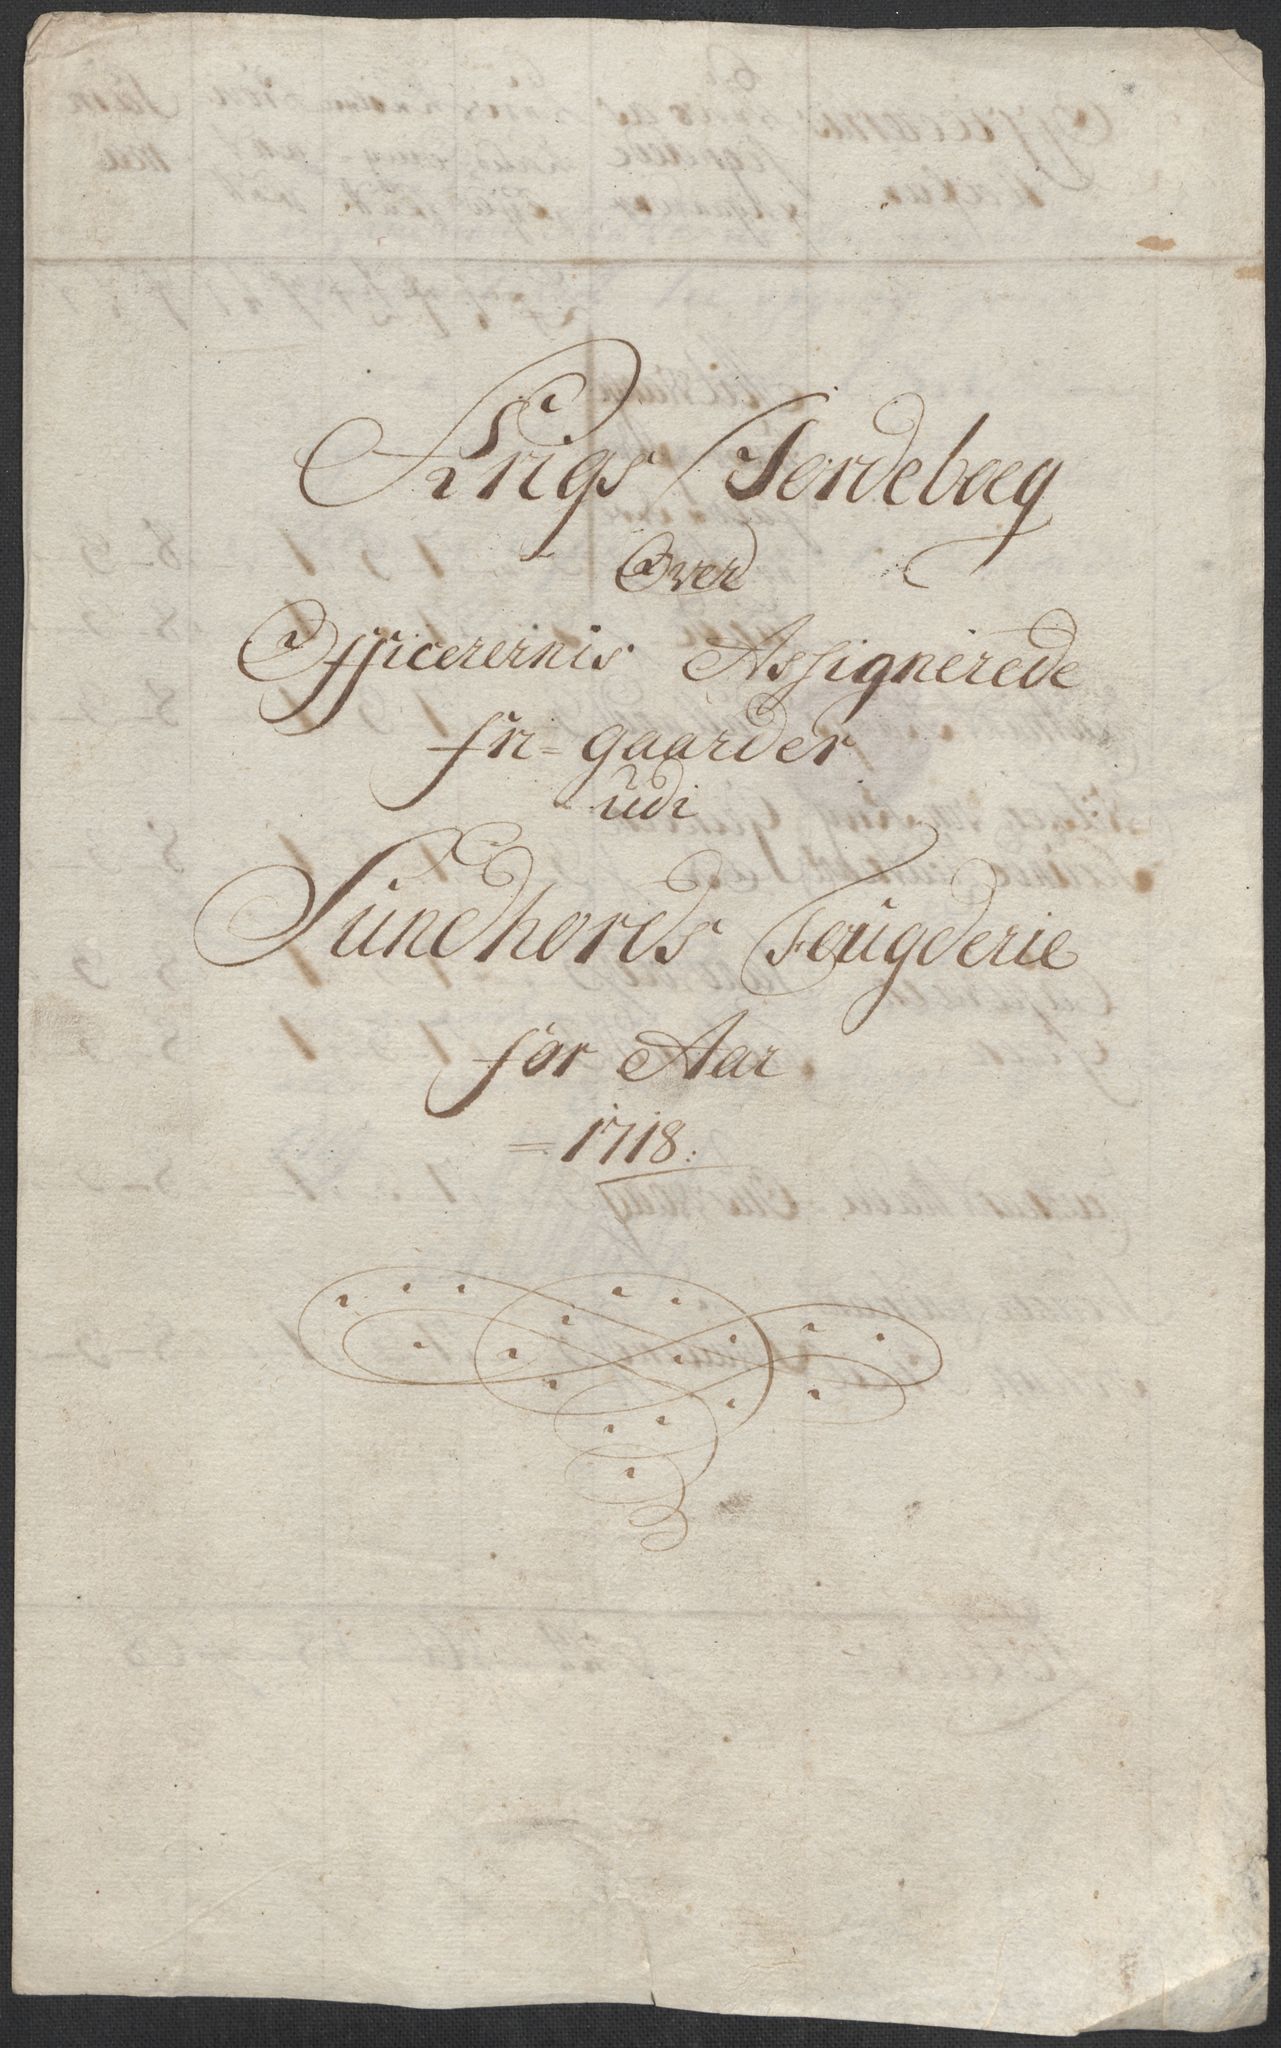 Krigs Jordeboeg
Over
Officerernis Assignerede
fri=gaarder
udi
Sundhords Fougderie
for Aar
=1718: